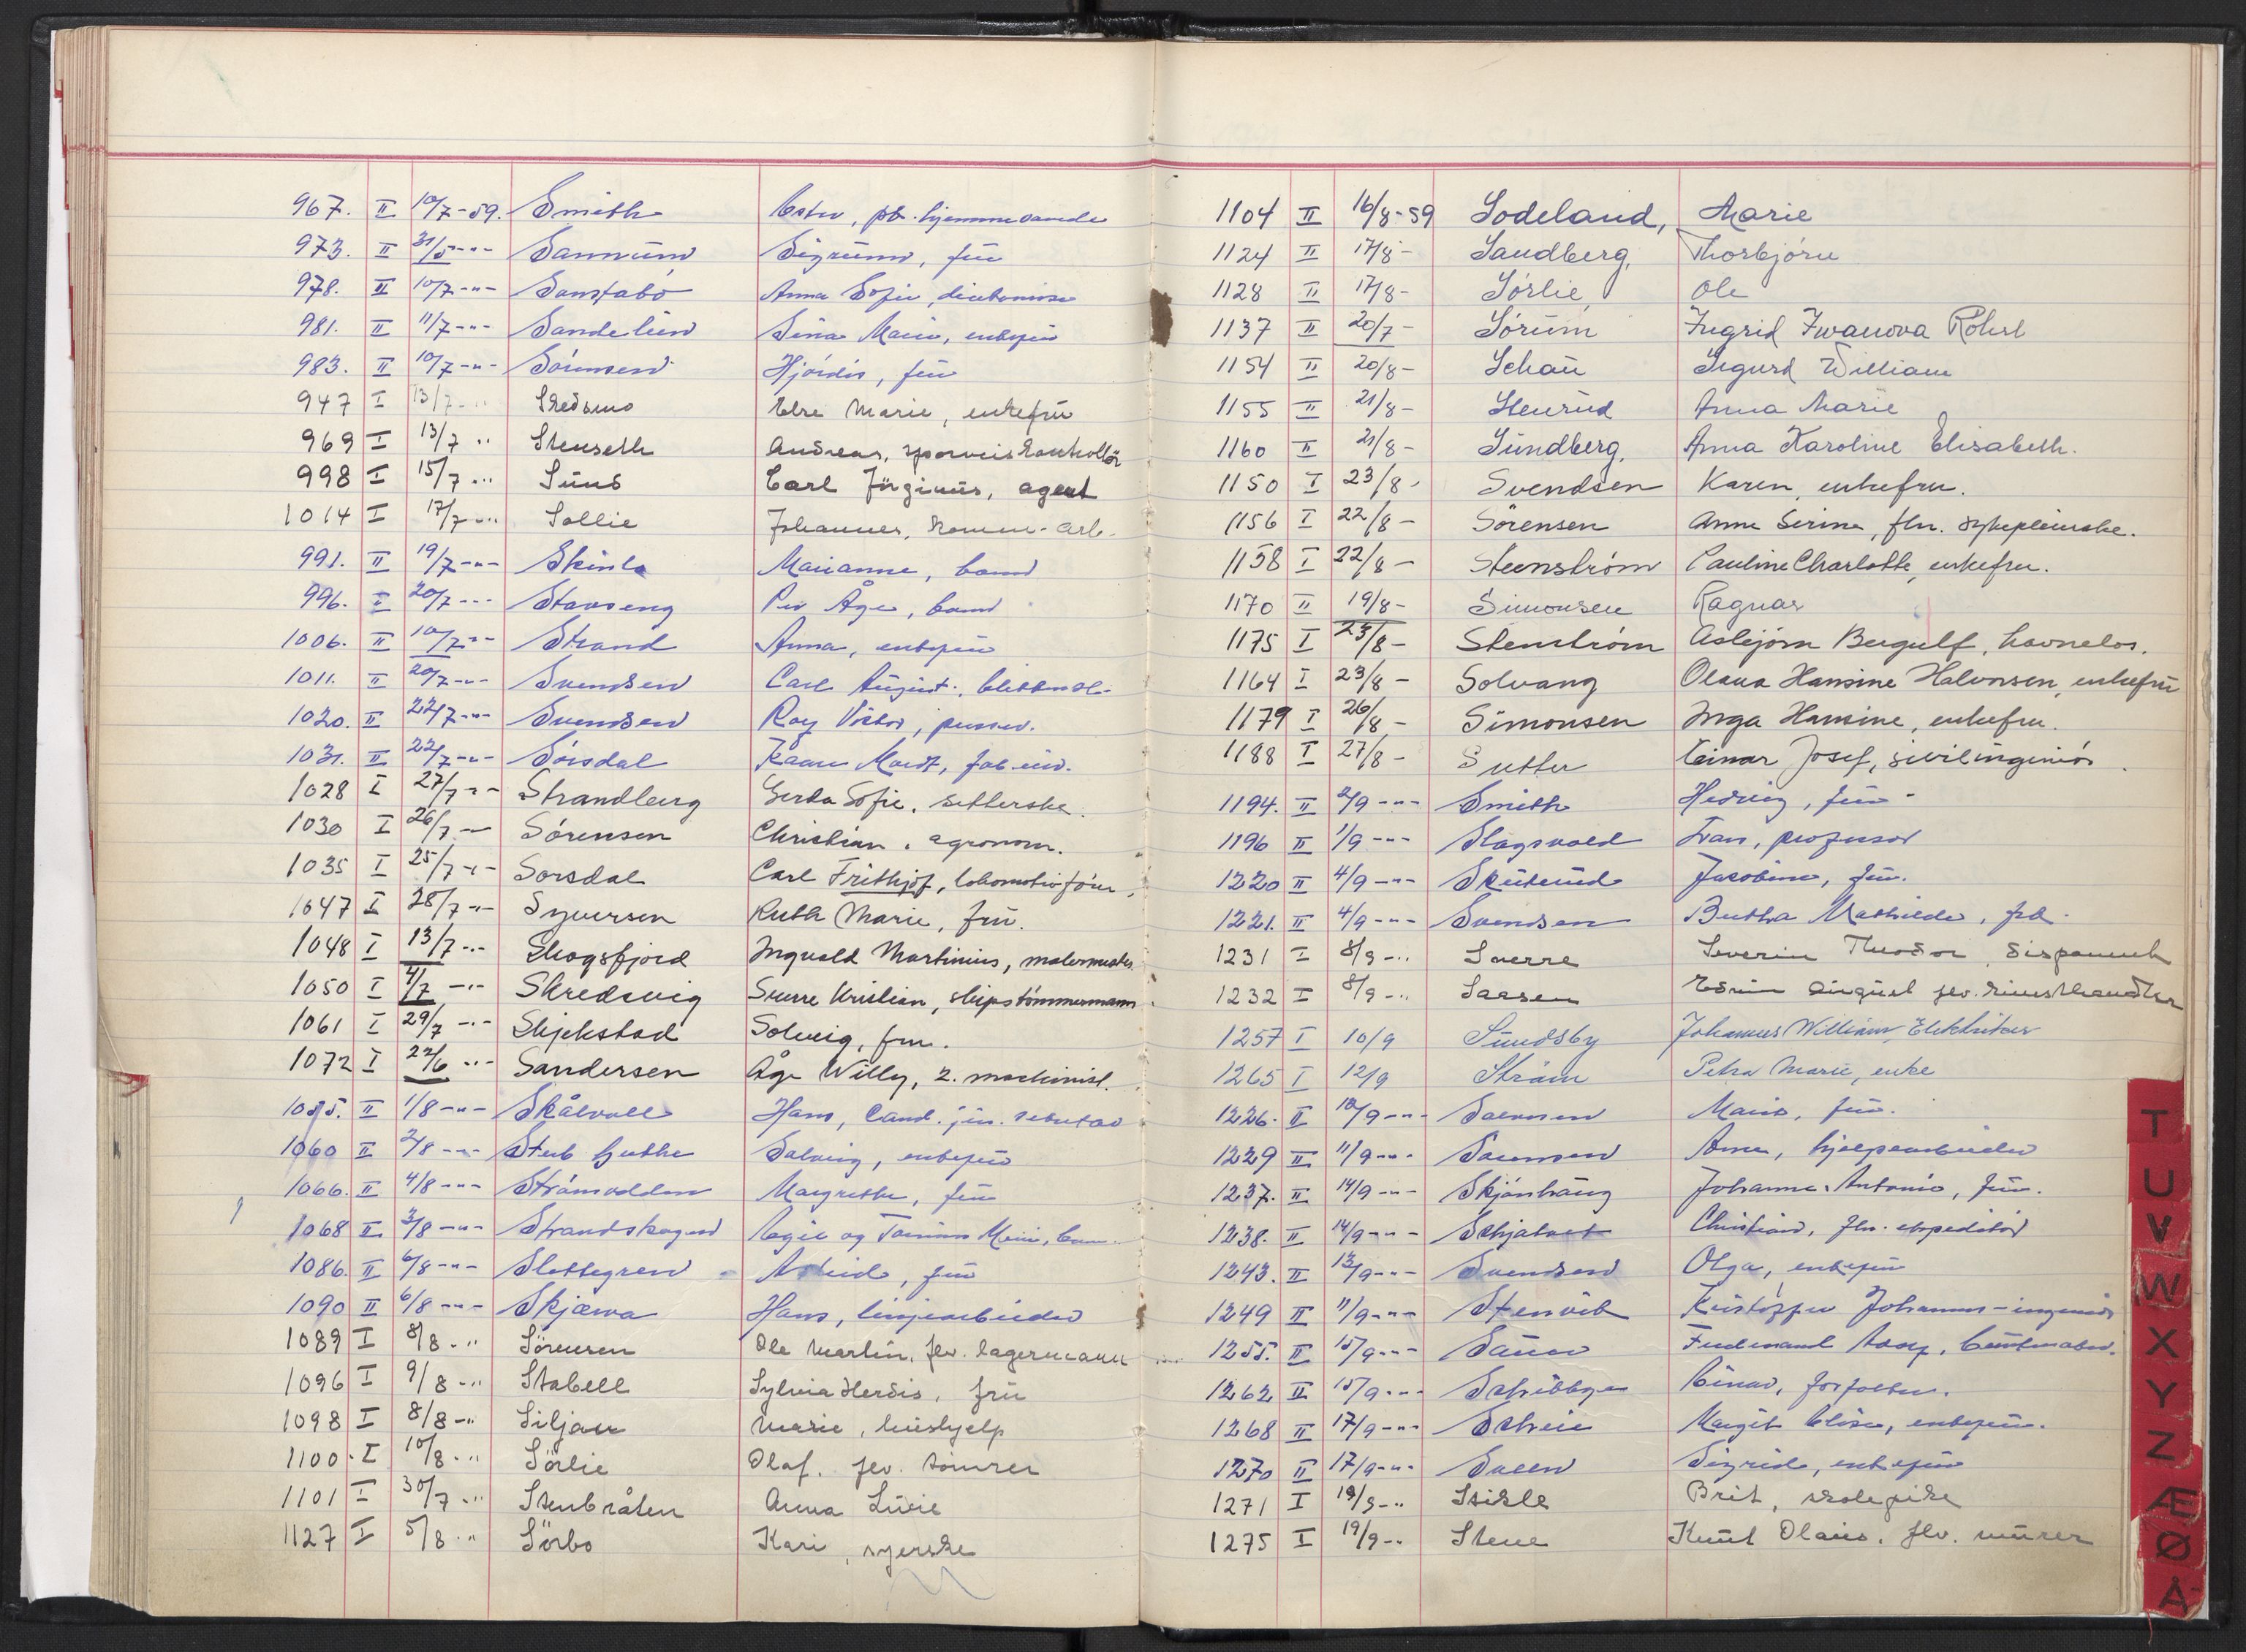 967. II 10/7-59. Smith Ester, pb. hjemmeværende
973. II 31/5-"- Sannum Sigrunn, fru
978. II 10/7-"- Sanstabø Anna Sofie, diakonisse
981. II 11/7-"- Sandelien Lina Marie, enkefru
983. II 10/7-"- Sörensen Hjördis, fru
947 I 13/7-" Skedsmo Else Marie, enkefrü
969 I 13/7 " Stenseth Andreas, sporveiskontrollör
998 I 15/7 -" Sünd Carl Jörginüs, agent
1014 I 17/7-" Sollie Johannes, komm-arb.
991. II 19/7-"- Skinlo Marianne, barn
996. I 20/7-"- Stavseng Per Åge, barn
1006. II 10/7-"- Strand Anna, enkefru
1011. II 20/7-"- Svendsen Carl August,
1020. II 22/7-"- Svendsen Roy Victor, pensj.
1031. II 22/7-"- Sörsdal Kåre
1028 I 27/7 -"- Strandberg Gerda Sofie, setterske.
1030 I 26/7 -" Sörensen Christian, agronom.
1035 I 25/7-"- Sorsdal Carl Frithjof, lokomotivförer,
1047 I 28/7 -"- Syversen Ruth Marie, frü.
1048 I 13/7-"- Skogsfjord Ingvald Martinius, malermester
1050 I 4/7 -"- Skredsvig Sverre Kristian, skipstömmermann
1061 I 29/7 -"- Skjekstad Solveig, fru.
1072 I 22/6 -"- Sandersen Åge Willy, 2. maskinist.
1055. II 1/8-"- Skålvoll Hans, Cand. jur. sekretær
1060 II 2/8-"- Stub Solveig, enkefru
1066. II 4/8-"- Strömodden Margrethe, fru
1068 II 3/8-"- Strandskogen Marie, barn
1086. II 6/8-"- Slettegren Astrid, fru
1090 II 6/8-"- Skjæwa Hans, linjearbeider
1089 I 8/8-" Sörensen Ole Martin, flv. lagermann
1096 I 9/8-" Stabell Sylvia Herdis, frü
1098 I 8/8-" Siljan Marie, hüshjelp
1100. I 10/8-" Sörlie Olaf. flv. tömrer
1101 I 30/7-" Stenbråten Anna Lüvie
1127 I 5/8-" Sörbo Kari, syerske
1104 II 16/8-59 Sodeland, Marie
1124 II 17/8- Sandberg, Thorbjörn
1128 II 17/8- Sörlie, Ole
1137 II 20/7- Sörüm Ingrid Iwanova Röhrl
1154 II 20/8- Schaü Sigurd William
1155 II 21/8- Stenrüd Anna Marie
1160 II 21/8- Sündberg, Anna Karoline Elisabeth.
1150 I 23/8- Svendsen Karen, enkefru.
1156 I 22/8- Sörensen Anna Serina, flv. sykepleierske.
1158 I 22/8- Steenström Pauline Charlotte, enkefru.
1170 II 19/8- Simonsen Ragnar
1175 I 23/8- Stenström Asbjörn Bergulf, havnelos.
1164 I 23/8- Solvang Olava Hansine Halvorsen, enkefrü
1179 I 26/8- Simonsen Inga Hansine, enkefru.
1188 I 27/8- Sutter Einar Josef, sivilingeniör.
1194. II 2/9-"- Smith Hedvig, fru
1196 II 1/9-"- Slagsvold Ivan, professor
1220 II 4/9-"- Sküterud Jacobine, fru.
1221. II 4/9-"- Svendsen Bertha Mathilde, frk.
1231 I 8/9-" Sverre Severin Theodor, Disponent
1232 I 8/9-" Saasen Edvin Aügüst flv. Künsthandler
1257 I 10/9 Sündsby Johannes William, Elektriker
1265 I 12/9 Ström Petra Marie, enke
1226. II 10/9-"- Sørensen fru.
1229 II 11/9-"- Sørensen Arne, hjelpearbeider
1237. II 14/9-"- Skjönhaug Johanne Antonie, fru.
1238. II 14/9-"- Schjatvet Christian, flv. ekspeditör
1243. II 13/9-"- Svendsen Olga, enkefru
1249 II 11/9-"- Stenvik Kristoffer Johannes - ingeniör
1255. II 15/9-"- Ferdinand
1262 II 15/9-"- Schibbye Einar, forfatter.
1268 II 17/9-"- Schei Margit Elise, enkefru.
1270 II 17/9-"- Sveen Sigrid, enkefru
1271 I 19/9-" Stikle Brit, skolepike
1275 I 19/9-" Stene Knüt Olaüs. flv. mürer
T
U
V
W
X
Y
Z
Æ
Ø
Å